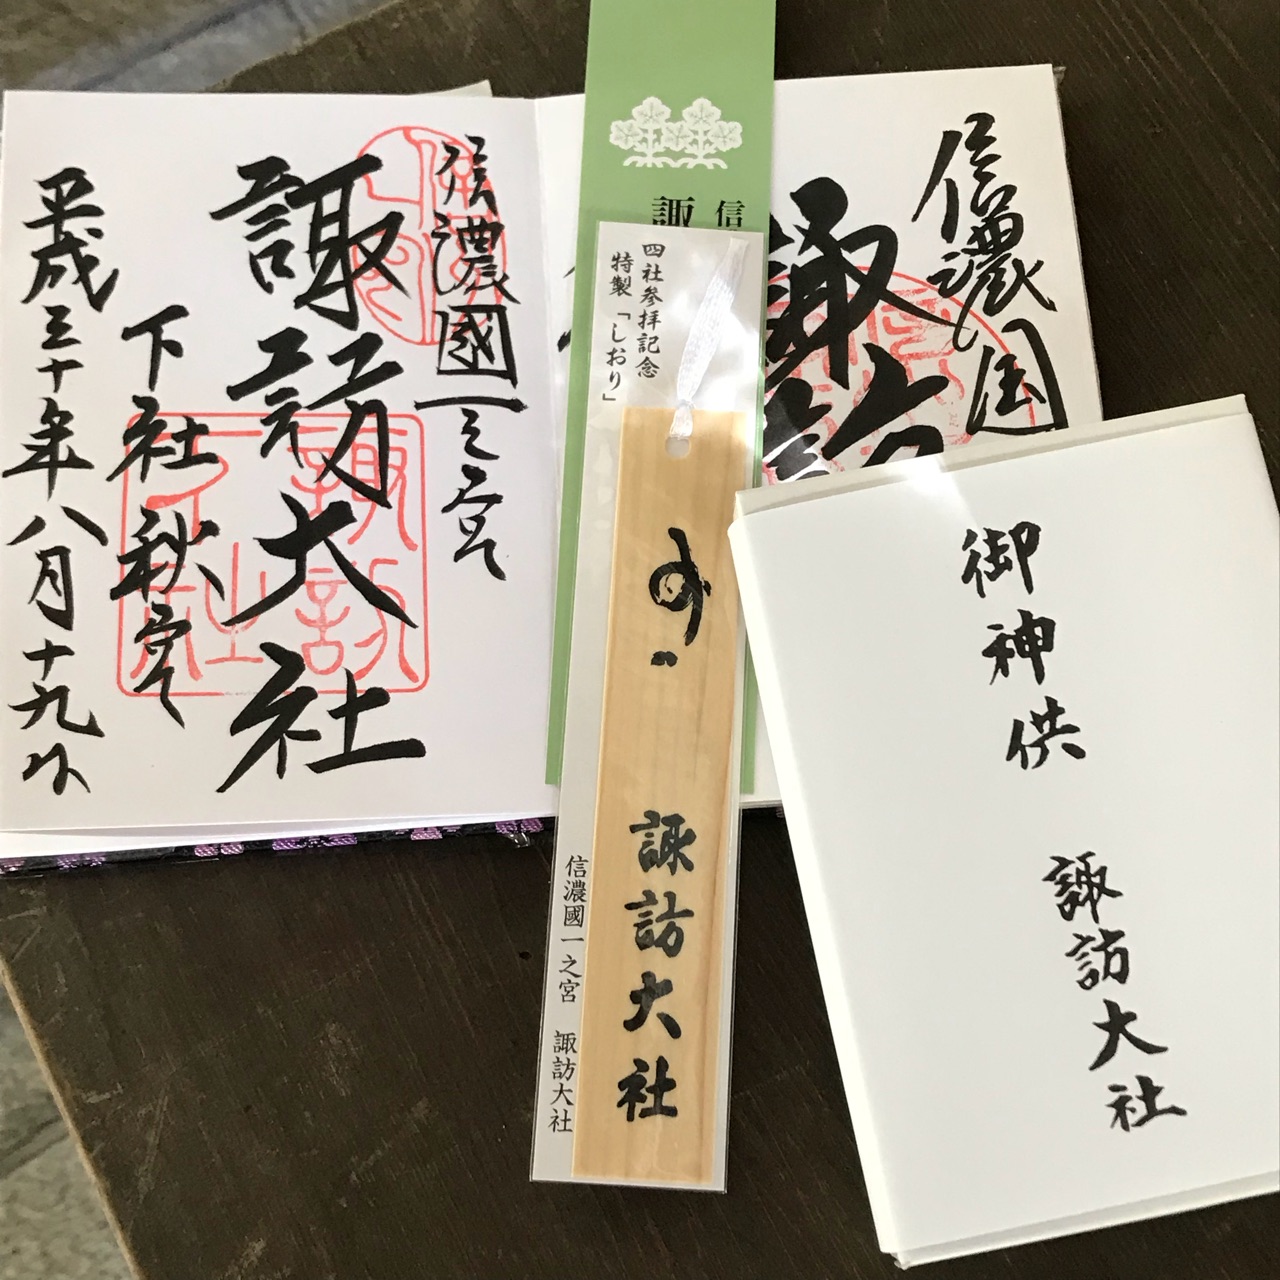 信濃國一之宮
諏訪大社
下社秋宮
平成三十年八月十九日
信
諏
四社参拝記念
特製「しおり」
諏訪大社
信濃國一之宮 諏訪大社
信濃国
諏訪
御神供
諏訪大社